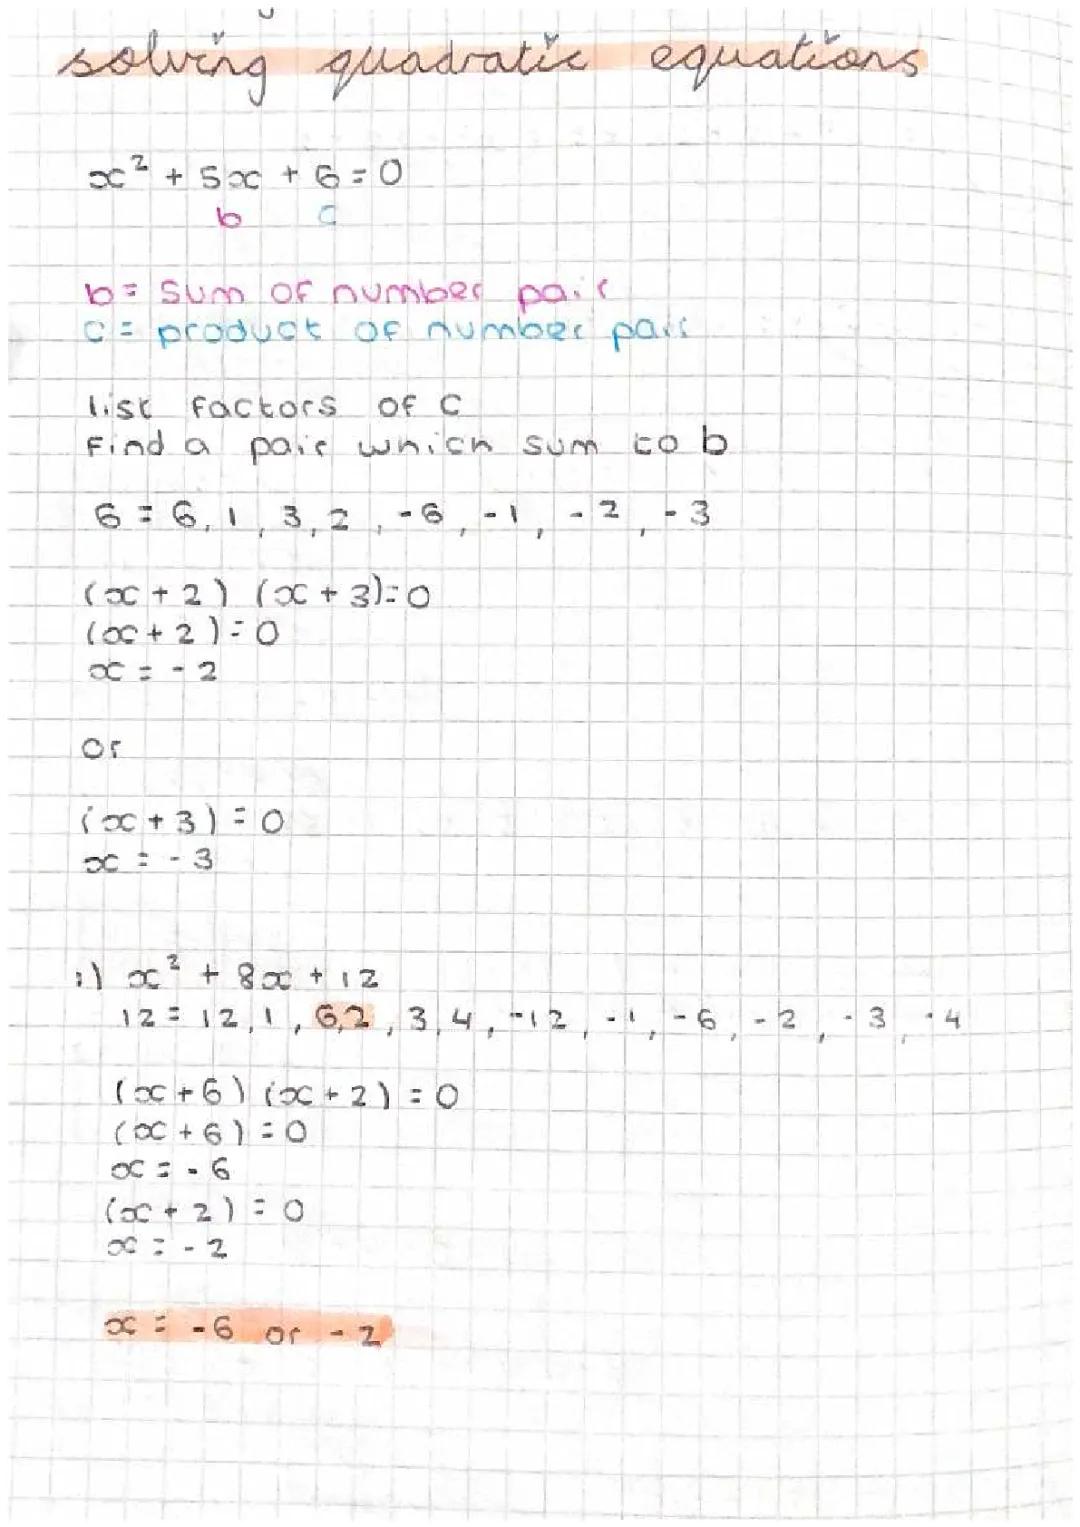 solving quadratic equations
x² + 5x + 6 = 0
b c
b = sum of number pair
c = product of number pair
list factors of c
Find a pair which sum to b
6 = 6, 1, 3, 2, -6, -1, -2, -3
(x + 2) (x + 3) = 0
(x + 2) = 0
x = -2
or
(x + 3) = 0
x = -3
1) x² + 8x + 12
12 = 12, 1, 6,2, 3, 4, -12, -1, -6, -2, -3, -4
(x + 6) (x + 2) = 0
(x + 6) = 0
x = -6
(x + 2) = 0
x = -2
x = -6 or -2